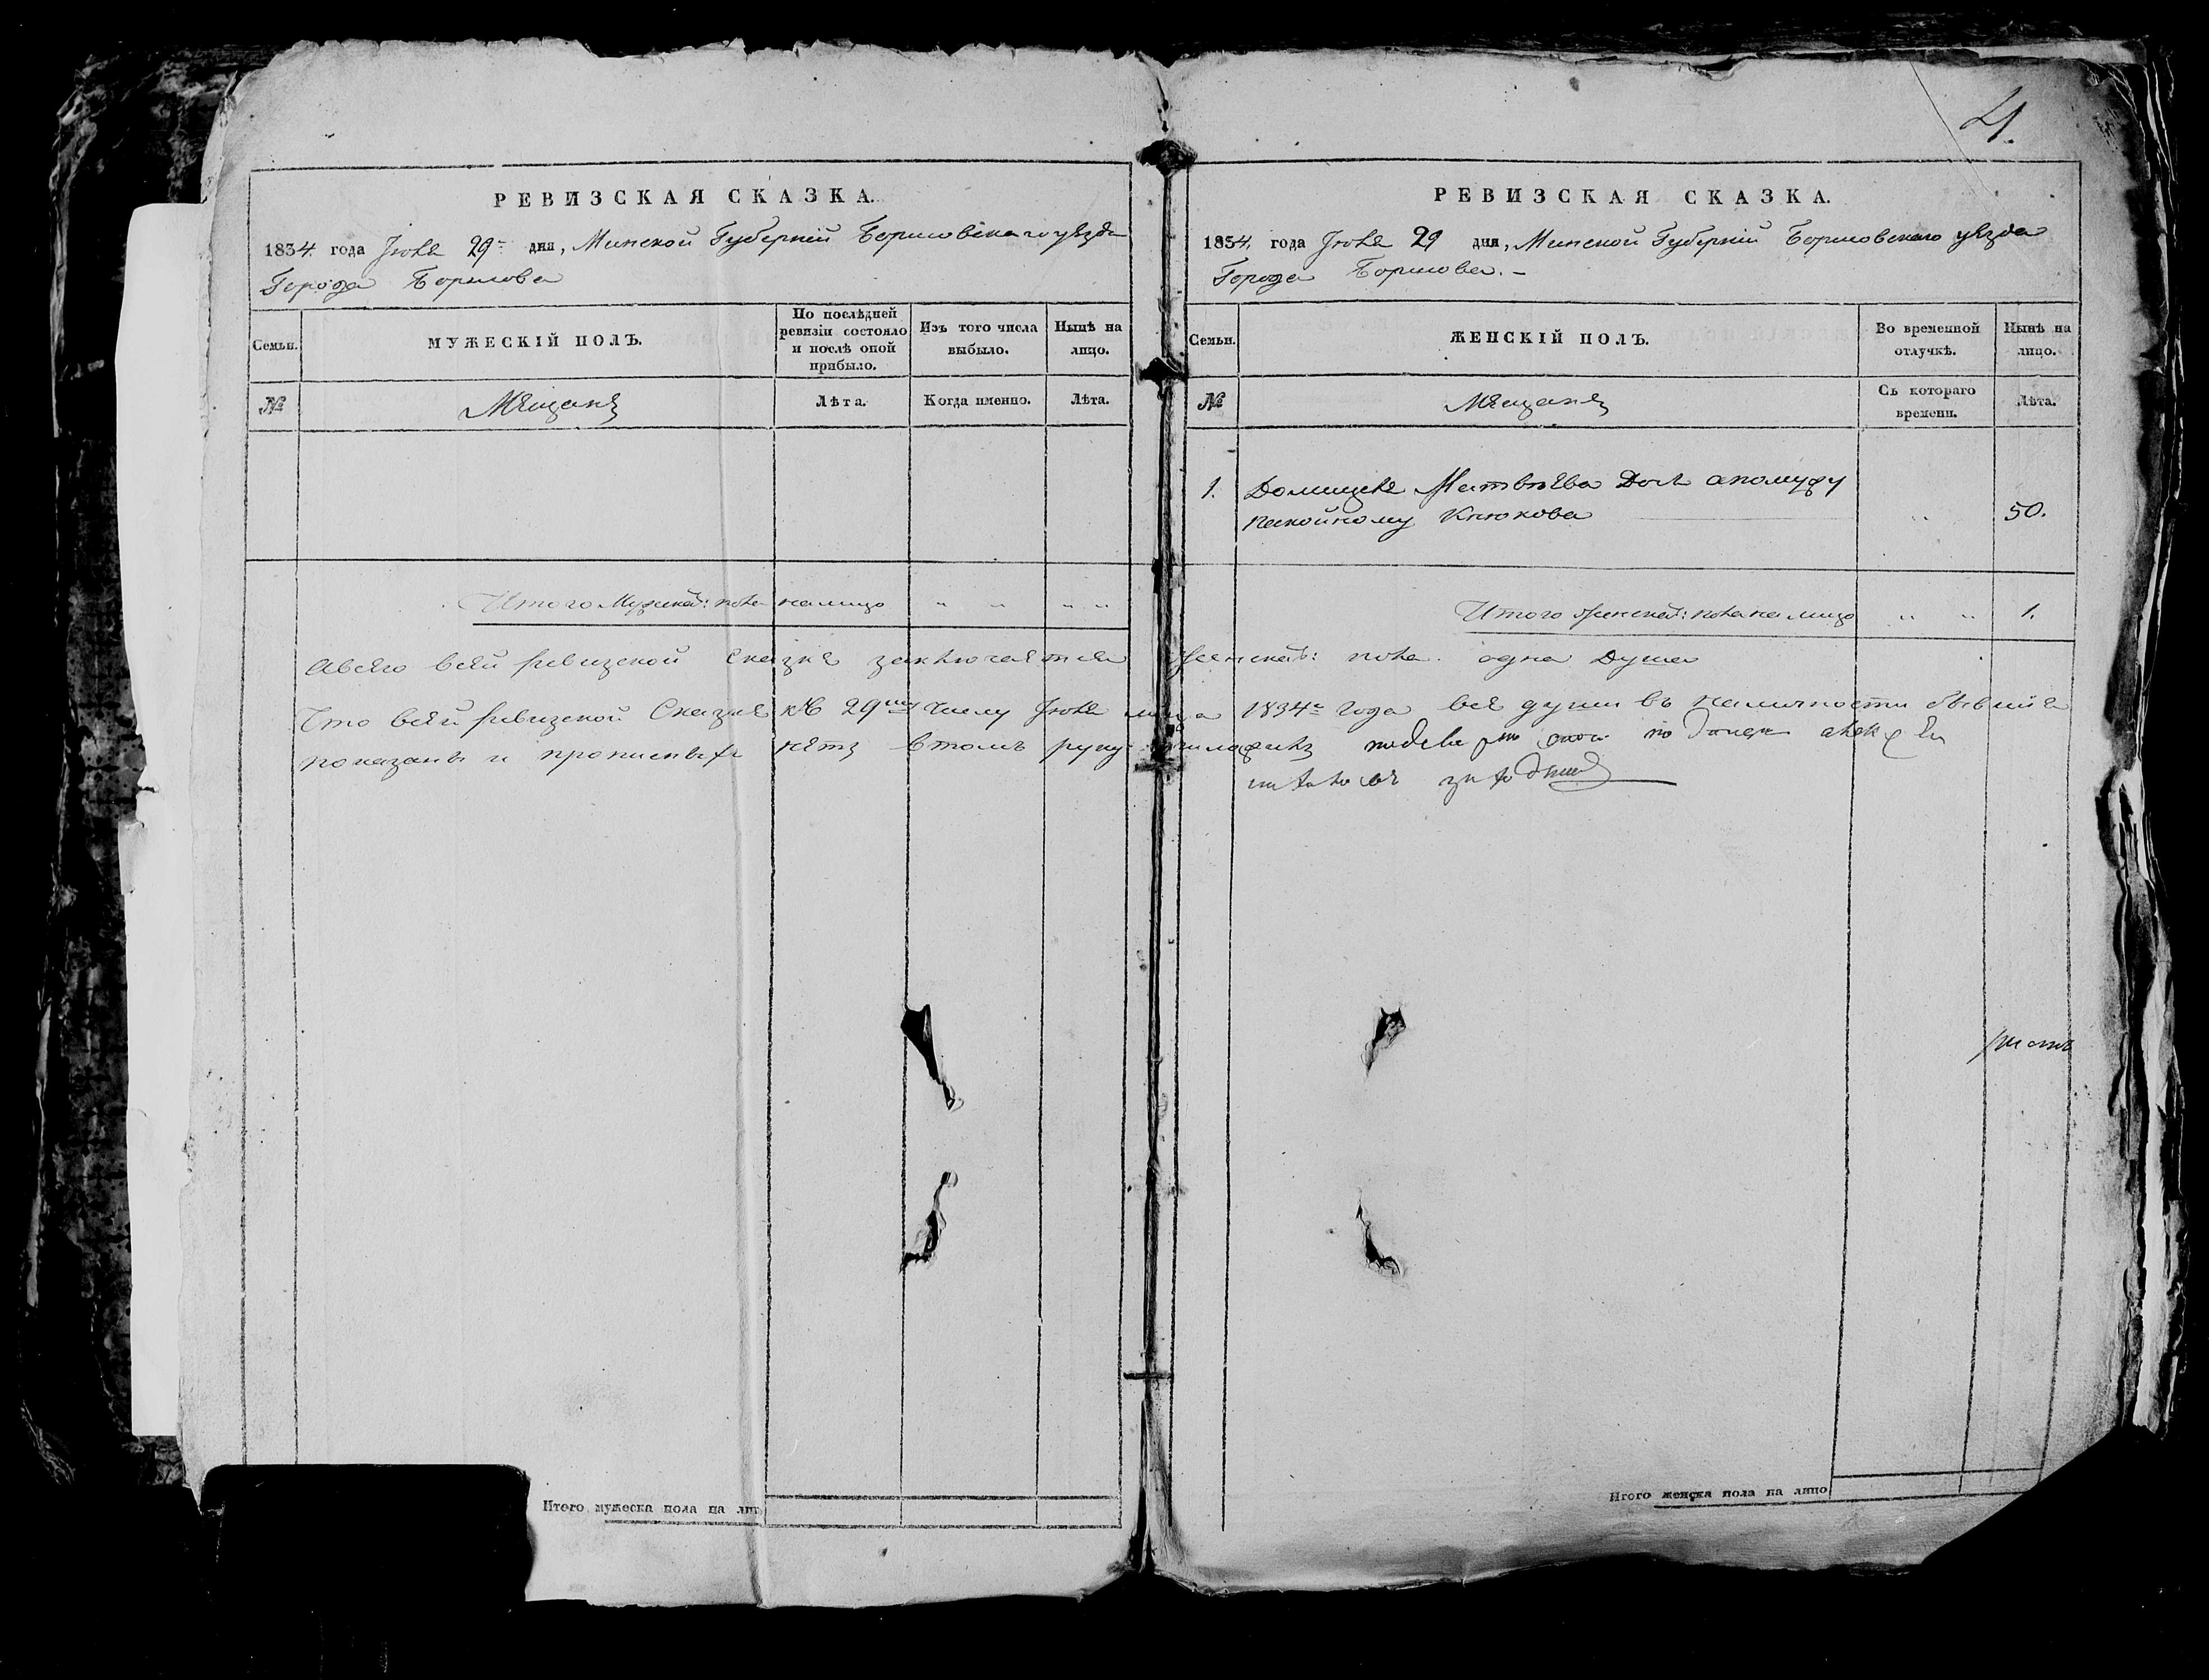 4.
РЕВИЗСКАЯ СКАЗКА.
1834. года Іюля 29 дня, Минской Губерніи Борисовскаго уѣзда
Города Борисова
Семьи.
МУЖЕСКІЙ ПОЛЪ.
По послѣдней ревизіи состояло и послѣ оной прибыло.
Изъ того числа выбыло.
Нынѣ на лицо.
№
Мещанъ
Лѣта.
Когда именно.
Лѣта.
Итого Мужеска: пола налицо " " " "
РЕВИЗСКАЯ СКАЗКА.
1834. года Іюля 29 дня, Минской Губерніи Борисовскаго уѣзда
Города Борисова. –
Семьи.
ЖЕНСКІЙ ПОЛЪ.
Во временной отлучкѣ.
Нынѣ на лицо.
№
Мещанъ
Съ котораго времени.
Лѣта.
1. Матвѣева апомужу
покойному Кнюкова " 50.
Итого женска: пола на лицо " " 1.
Авсего всей ревизской сказкѣ заключается женска: пола одна душа
Что всей ревизской Сказкѣ къ 29му числу Іюля мца 1834го года всѣ души въ наличности бывшіе
показаны и прописныхъ нетъ втомъ
Итого мужеска пола на лиц
Итого женска пола на лицо